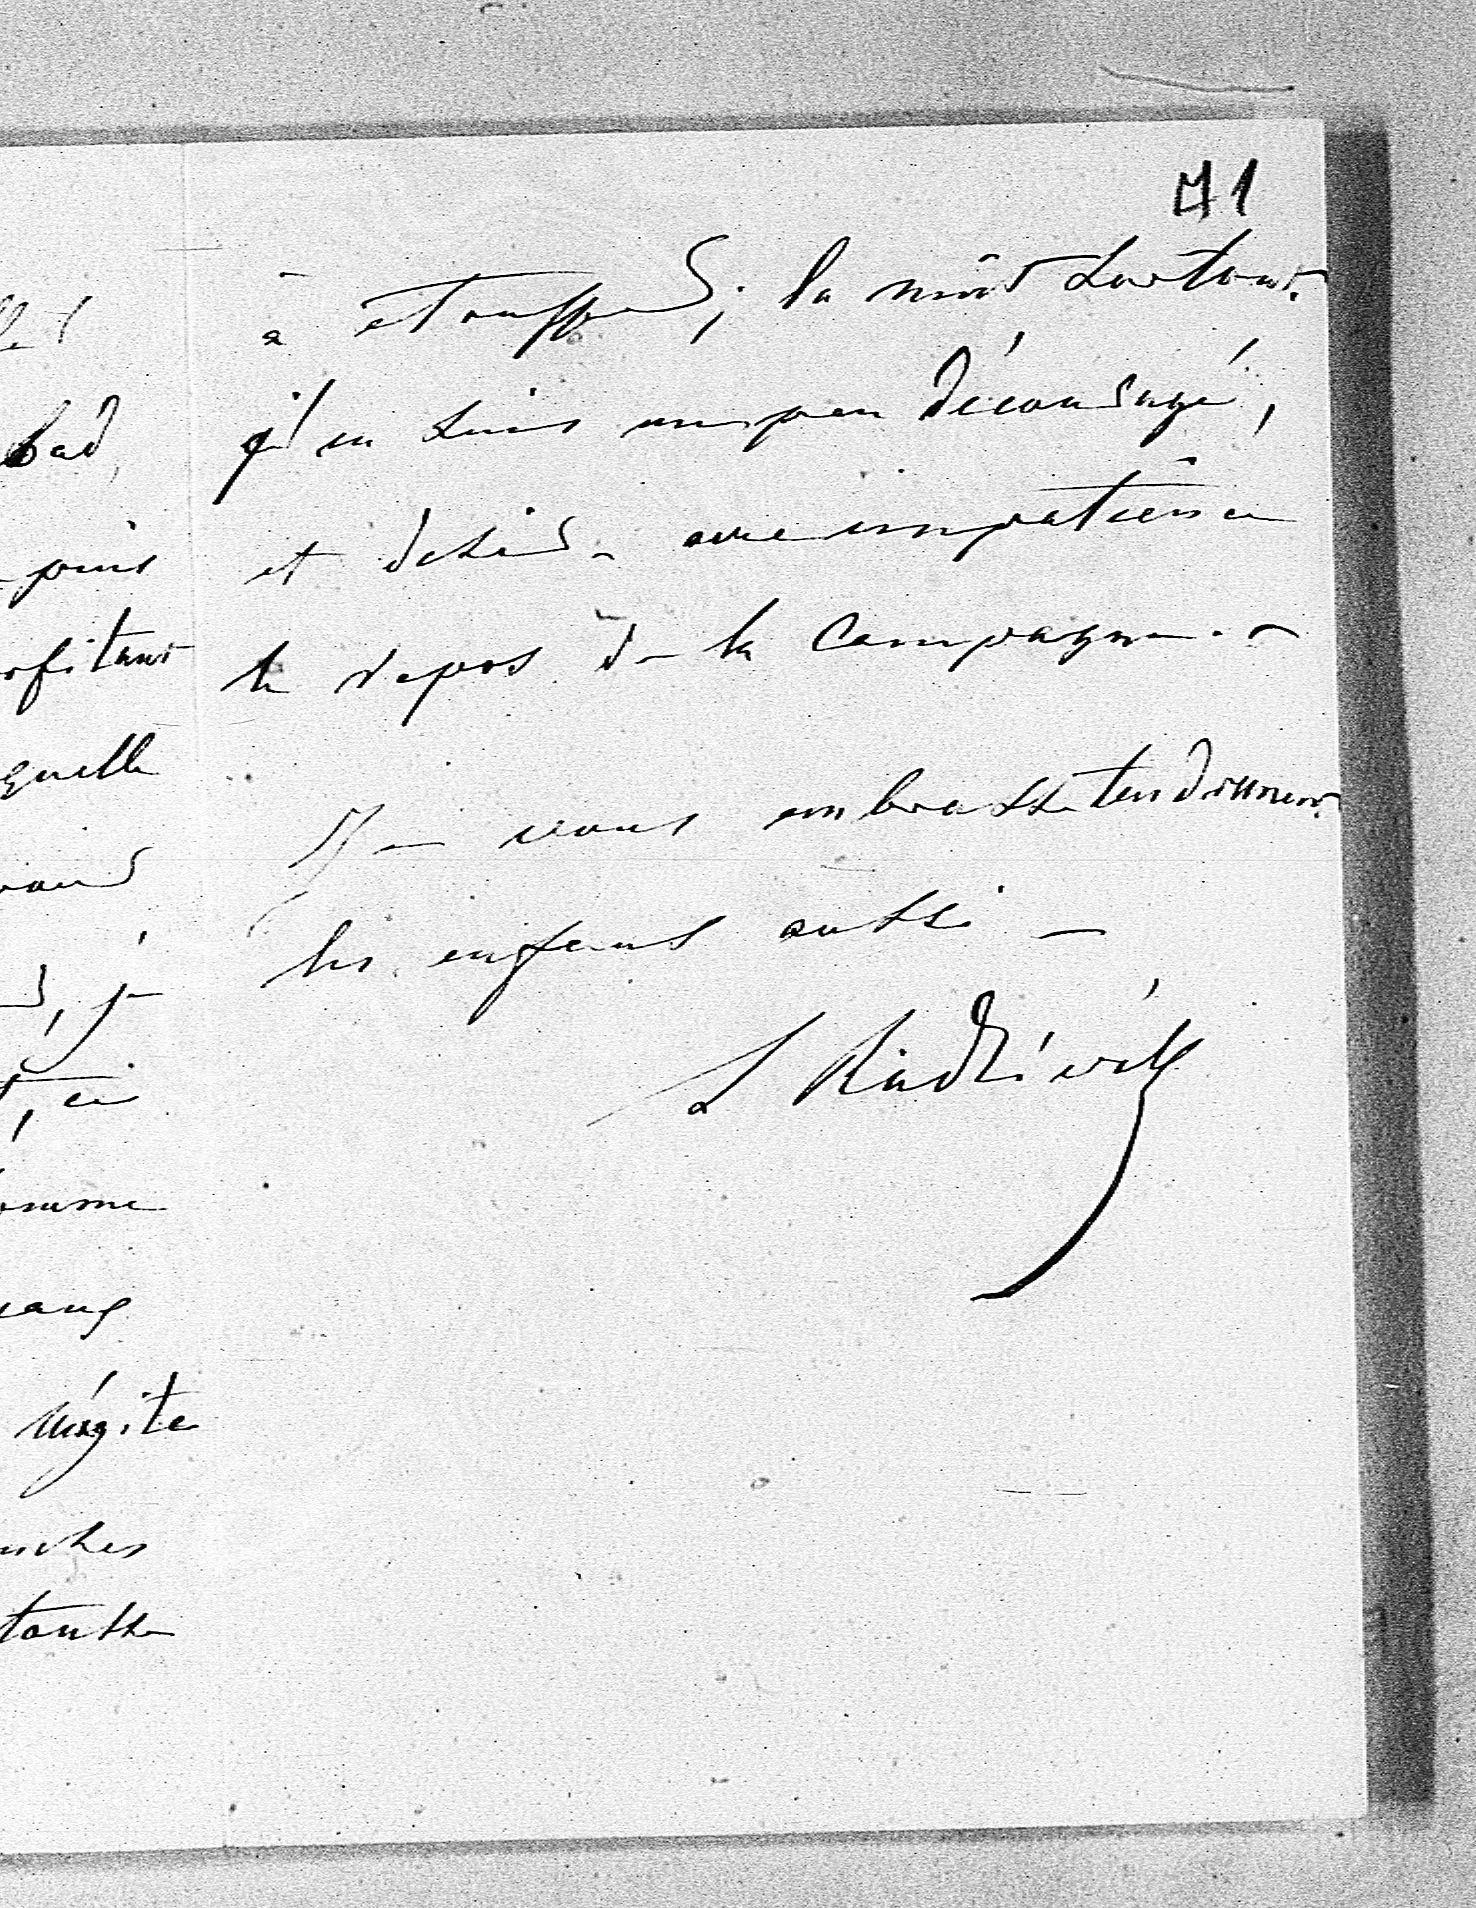 71
à etouffer; la nuit surtout.
j'en suis un peu découragé,
et desire avec impatience
le repos de la Campagne. –
Je vous embrasse tendrement.
les enfans aussi –
L Radziwill
bad,
puis
ofitant
quelle
, je
, en
omme
Mérite
ouches
tousse